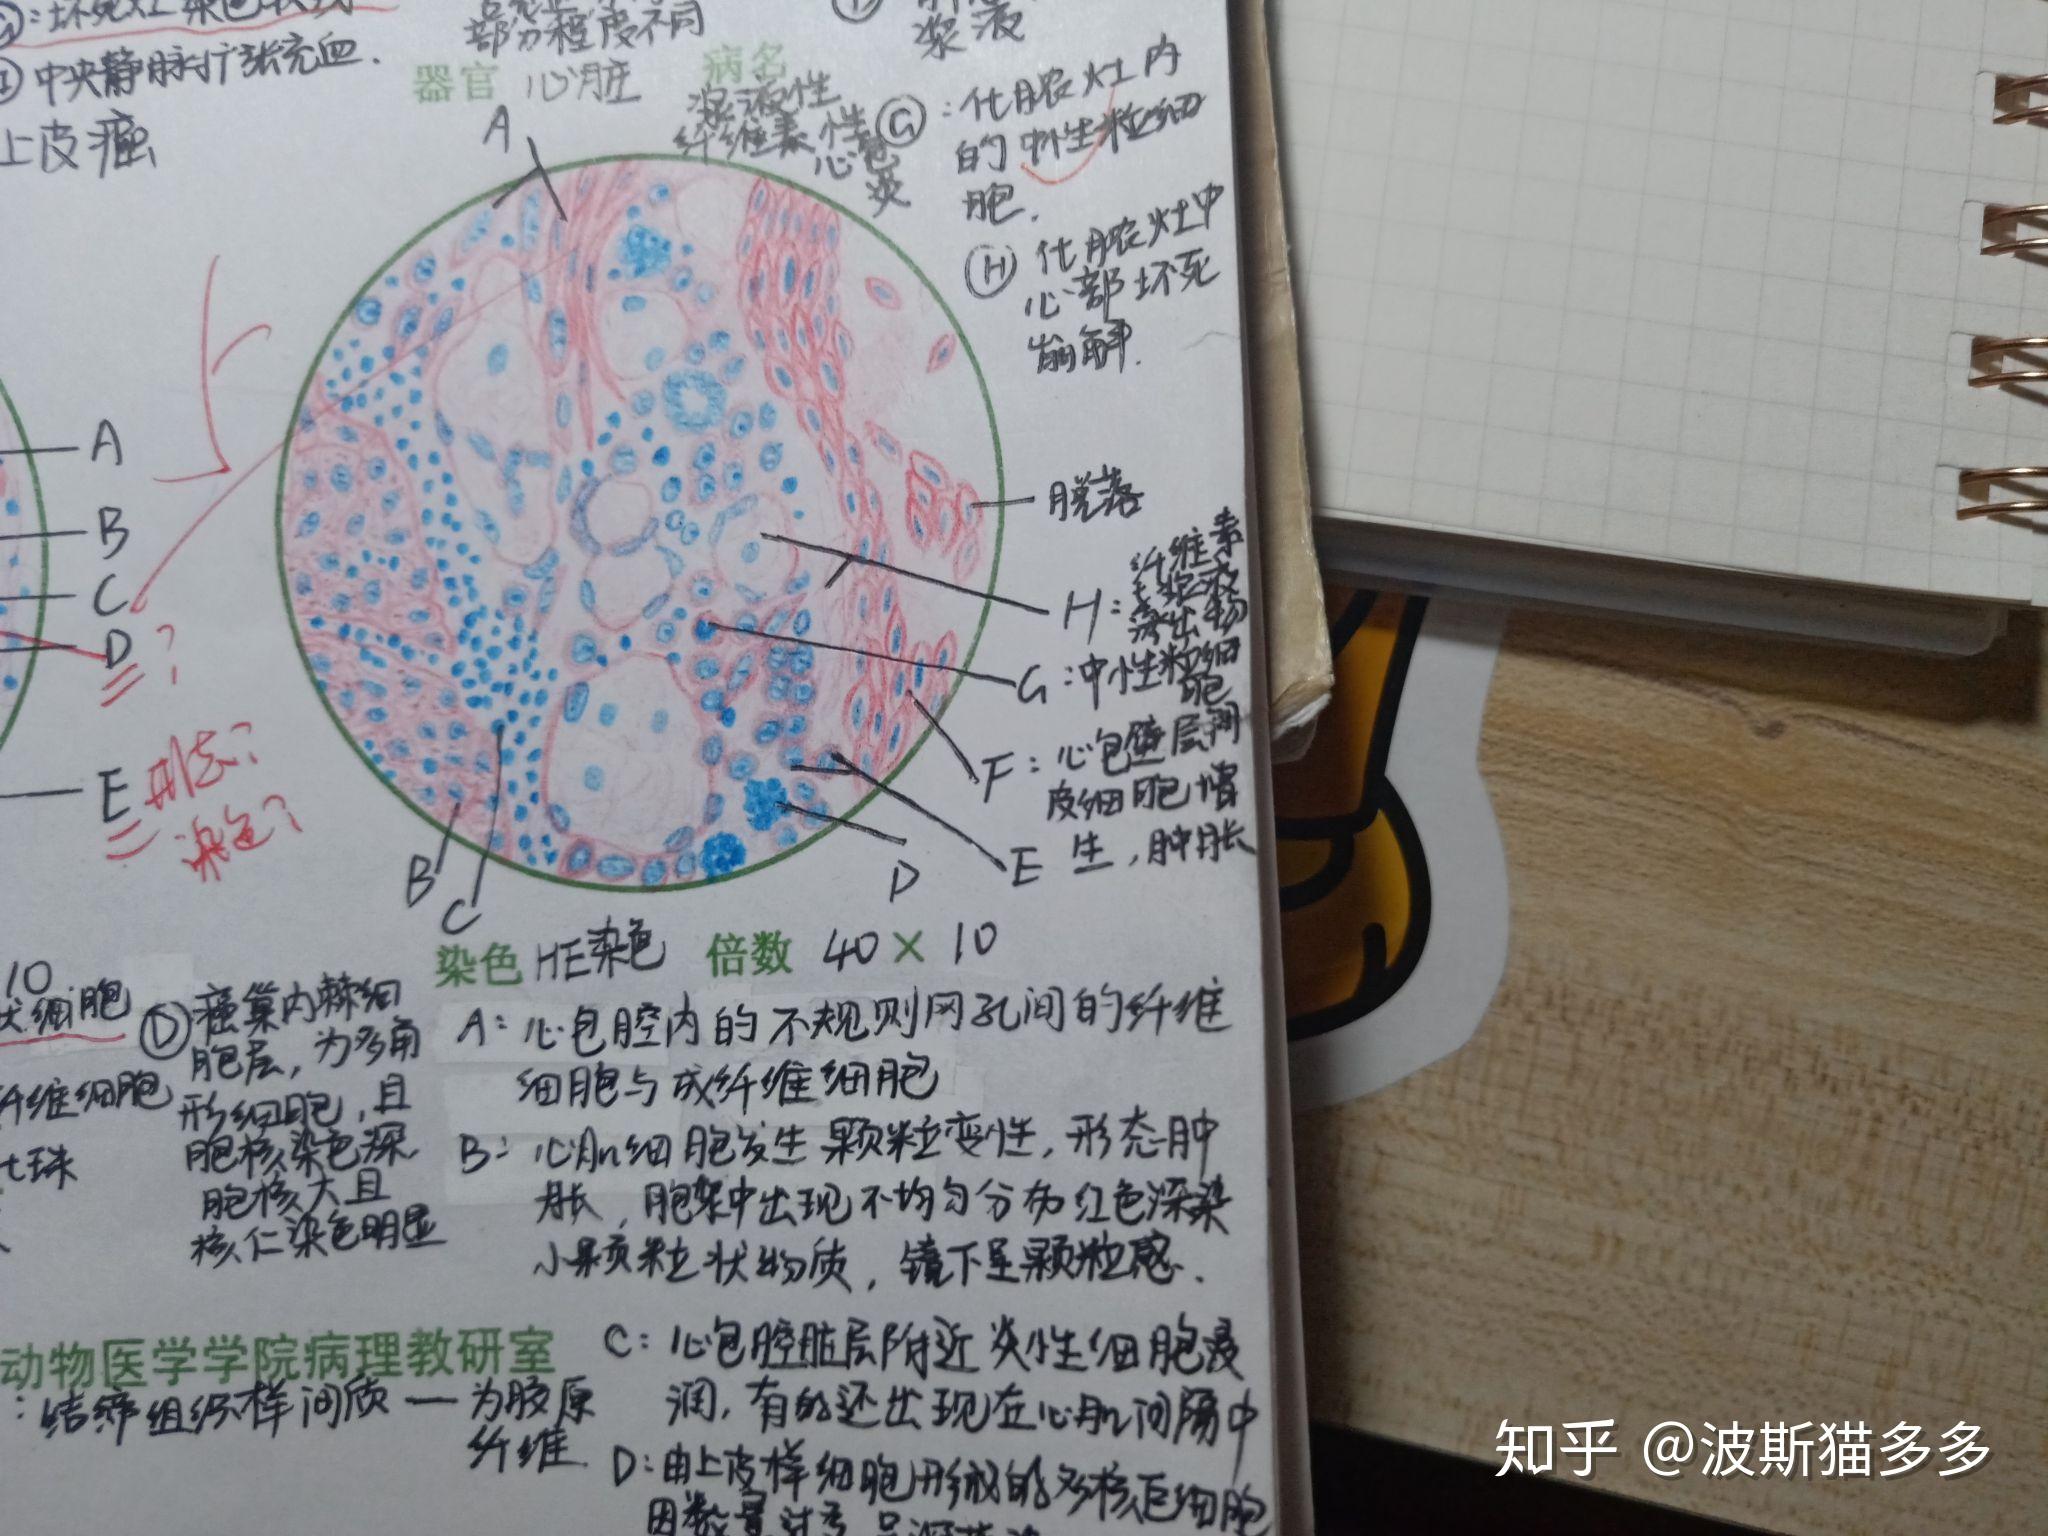 中央静脉扩张充血.
上皮瘤
部分程度不同
浆液
器官 心脏
病名
浆液性
纤维素性
心包
炎
A
G:化脓灶内
的中性粒细
胞.
H 化脓灶中
心部坏死
崩解.
A
B
C
D
?
E
形态?
染色?
脱落
H:纤维素
浆液
渗出物
G:中性粒细
胞
F:心包壁层间
皮细胞增
生,肿胀
E
D
B
C
染色 HE染色 倍数 40 × 10
10
状细胞
纤维细胞
化珠
D 癌巢内棘细
胞层,为多角
形细胞,且
胞核染色深,
胞核大且
核仁染色明显
A:心包腔内的不规则网孔间的纤维
细胞与成纤维细胞
B:心肌细胞发生颗粒变性,形态肿
胀,胞浆中出现不均匀分布红色深染
小颗粒状物质,镜下呈颗粒感.
动物医学学院病理教研室
:结缔组织样间质—为胶原
纤维.
C:心包腔脏层附近炎性细胞浸
润,有的还出现在心肌间隔中
D:由上皮样细胞形成的多核巨细胞
因数量过多
知乎 @波斯猫多多